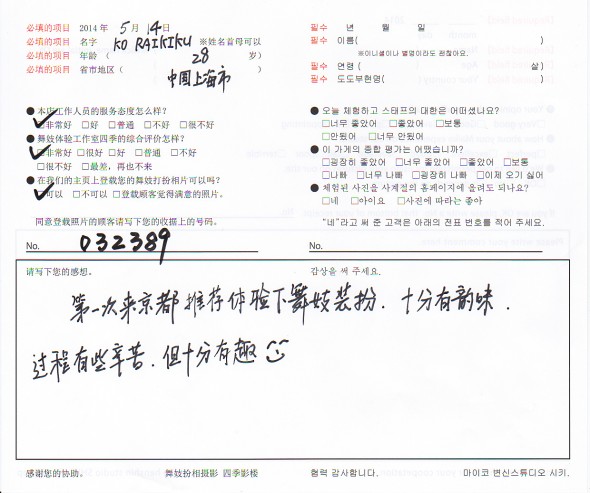 必填的项目 2014年 5月 14日
必填的项目 名字 KO RAIKIKU ※姓名首母可以
必填的项目 年龄 ( 28 岁)
必填的项目 省市地区 ( 中国上海市
● 本店工作人员的服务态度怎么样?
☑非常好 □好 □普通 □不好 □很不好
● 舞妓体验工作室四季的综合评价怎样?
☑非常好 □很好 □好 □普通 □不好
□很不好 □最差,再也不来
● 在我们的主页上登载您的舞妓打扮相片可以吗?
☑可以 □不可以 □登载顾客觉得满意的照片。
同意登载照片的顾客请写下您的收据上的号码。
No. 032389
필수 년 월 일
필수 이름( )
※이니셜이나 별명이라도 괜찮아요.
필수 연령 ( 살)
필수 도도부현명( )
● 오늘 체험하고 스태프의 대한은 어떠셨나요?
□너무 좋았어 □좋았어 □보통
□안됬어 □너무 안됬어
● 이 가게의 종합 평가는 어땠습니까?
□굉장히 좋았어 □너무 좋았어 □좋았어 □보통
□나빠 □너무 나빠 □굉장히 나빠 □이제 오기 싫어
● 체험된 사진을 사계절의 홈페이지에 올려도 되나요?
□네 □아이요 □사진에 따라는 좋아
“네”라고 써 준 고객은 아래의 전표 번호를 적어 주세요.
No.
请写下您的感想。 감상을 써 주세요.
第一次来京都推荐体验下舞妓装扮. 十分有韵味.
过程有些辛苦. 但十分有趣
感谢您的协助。 舞妓扮相摄影 四季影楼 협력 감사합니다. 마이코 변신스튜디오 시키.